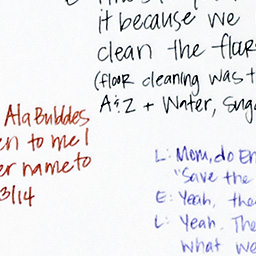 it because we
clean the floor
(floor cleaning was t
A&Z + Water, suga
Ala Bubbles
en to me!
er name to
3/14
L: Mom, do En
"Save the
E: Yeah, the
L: Yeah. The
what we